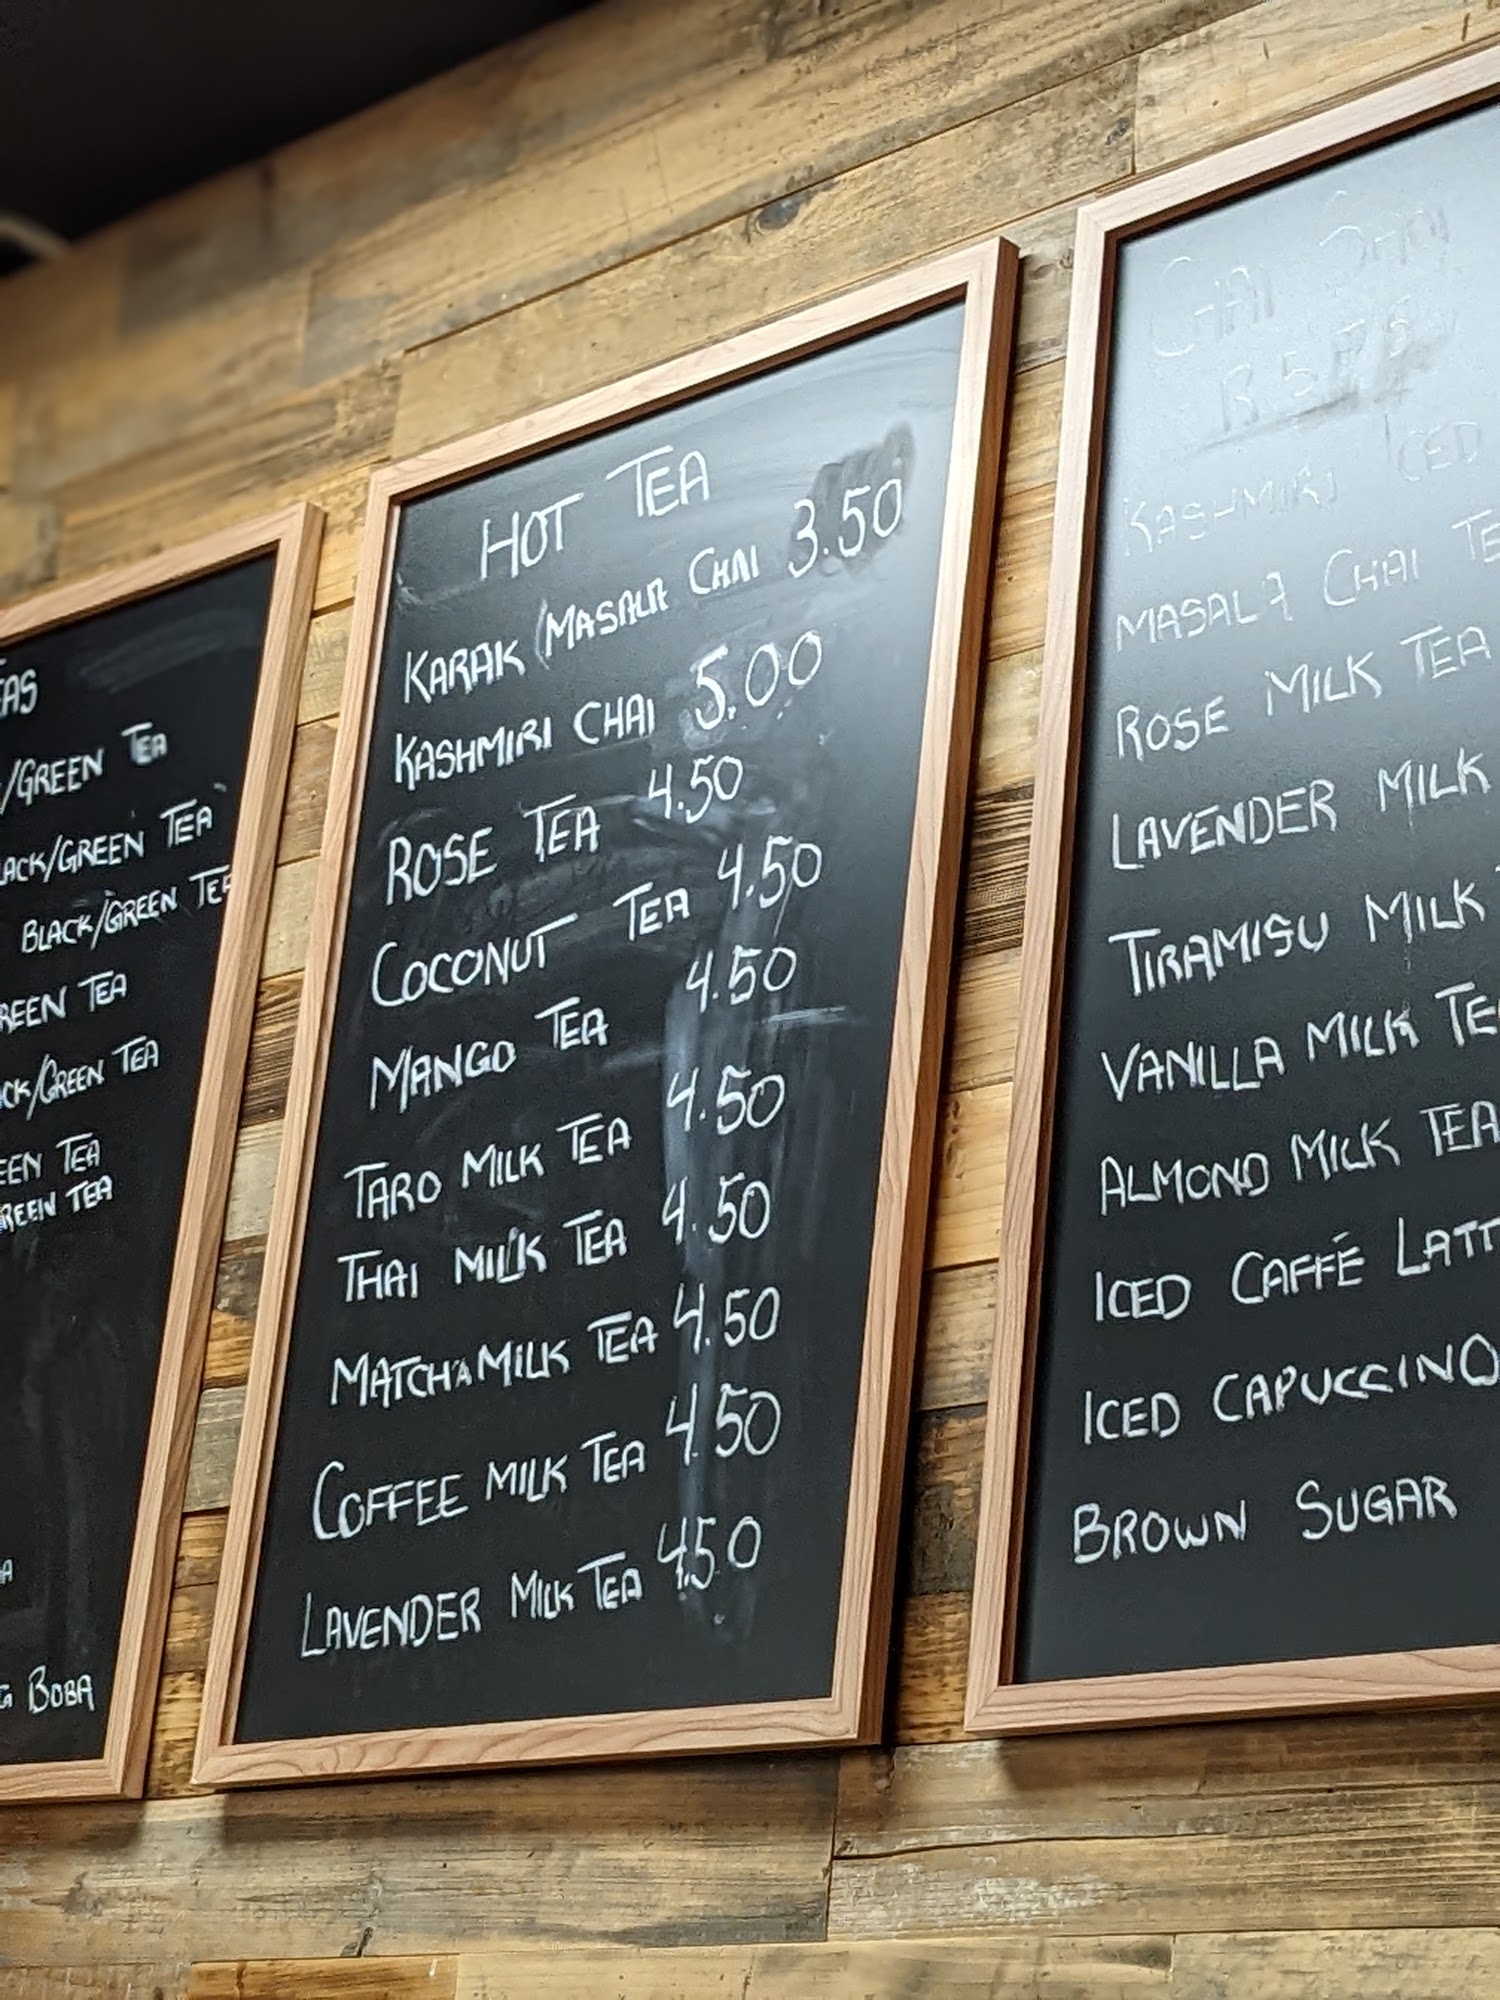 EAS
/GREEN TEA
LACK/GREEN TEA
BLACK/GREEN TEA
REEN TEA
CK/GREEN TEA
EEN TEA
REEN TEA
A
G BOBA
HOT TEA
KARAK (MASALA CHAI 3.50
KASHMIRI CHAI 5.00
ROSE TEA 4.50
COCONUT TEA 4.50
MANGO TEA 4.50
TARO MILK TEA 4.50
THAI MILK TEA 4.50
MATCHA MILK TEA 4.50
COFFEE MILK TEA 4.50
LAVENDER MILK TEA 4.50
CHAI
KASHMIRI ICED
MASALA CHAI TE
ROSE MILK TEA
LAVENDER MILK
TIRAMISU MILK
VANILLA MILK TE
ALMOND MILK TEA
ICED CAFFÉ LATT
ICED CAPUCCINO
BROWN SUGAR